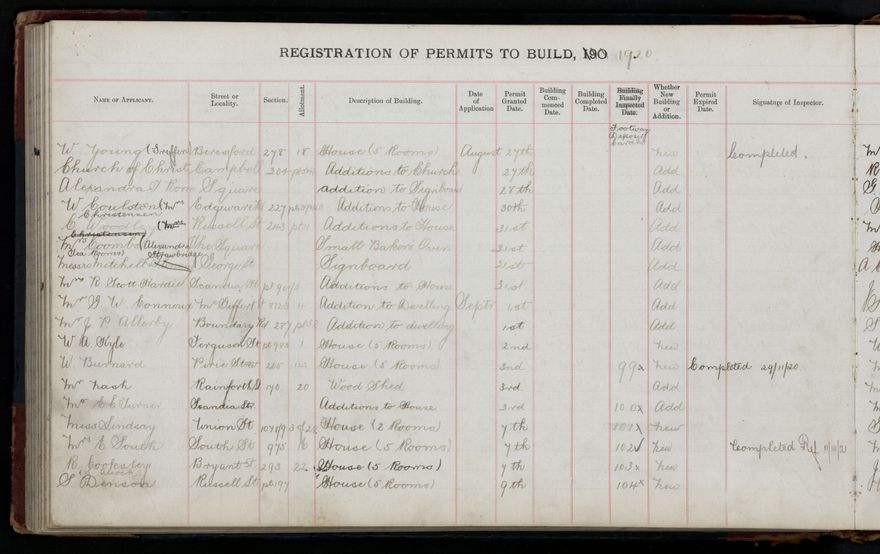 REGISTRATION OF PERMITS TO BUILD, 190 1920
NAME OF APPLICANT. STREET OR LOCALITY. SECTION. ALLOTMENT. DESCRIPTION OF BUILDING. DATE OF APPLICATION PERMIT GRANTED DATE. BUILDING COMMENCED DATE. BUILDING COMPLETED DATE. BUILDING FINALLY INSPECTED DATE. WHETHER NEW BUILDING OR ADDITION. PERMIT EXPIRED DATE. SIGNATURE OF INSPECTOR.
Footway Deposit Card No
W Young (Griffin) Beresford 278 18 House (5 Rooms) August 27th New Completed.
Church of Christ Campbell Additions to Church 27th Add
Alexandra T Room Square addition to Signboard 28th Add
W Coulston (Mrs Edgware Rd 227 Additions to House 30th Add
Christensen
C Woodley (Mrs Russell St 243 pt 11 Additions to House 31st Add
Christensen
Mrs Coombs (Alexandra The Square Small Bakers Oven 31st Add
Tea Rooms) Strawbridge
Messrs Mitchell George St Signboard 31st Add
Mrs R Scott Hardie Scandia St Additions to House 31st Add
Mr J. W. Connour Addition to Dwelling Septr 1st Add
Mr J P Allerby Boundary Rd 287 Addition to dwelling 1st Add
W A Kyle Ferguson St 1 House (5 Rooms) 2nd New
W Burnard Pirie Street House (5 Rooms) 3rd 99x New Completed 29/11/20
Mr Nash Rainforth St 90 20 Wood Shed 3rd Add
Mr A E Turner Scandia St. Additions to House 3rd 100x Add
Miss Lindsay Union St House (2 Rooms) 7th 101x New
Mrs E South South St 975 16 House (5 Rooms) 7th 102x New Completed
R Cortesloy Bryant St 293 22 House (5 Rooms) 7th 103x New
S Denson Russell St pt 197 House (5 Rooms) 9th 104x New